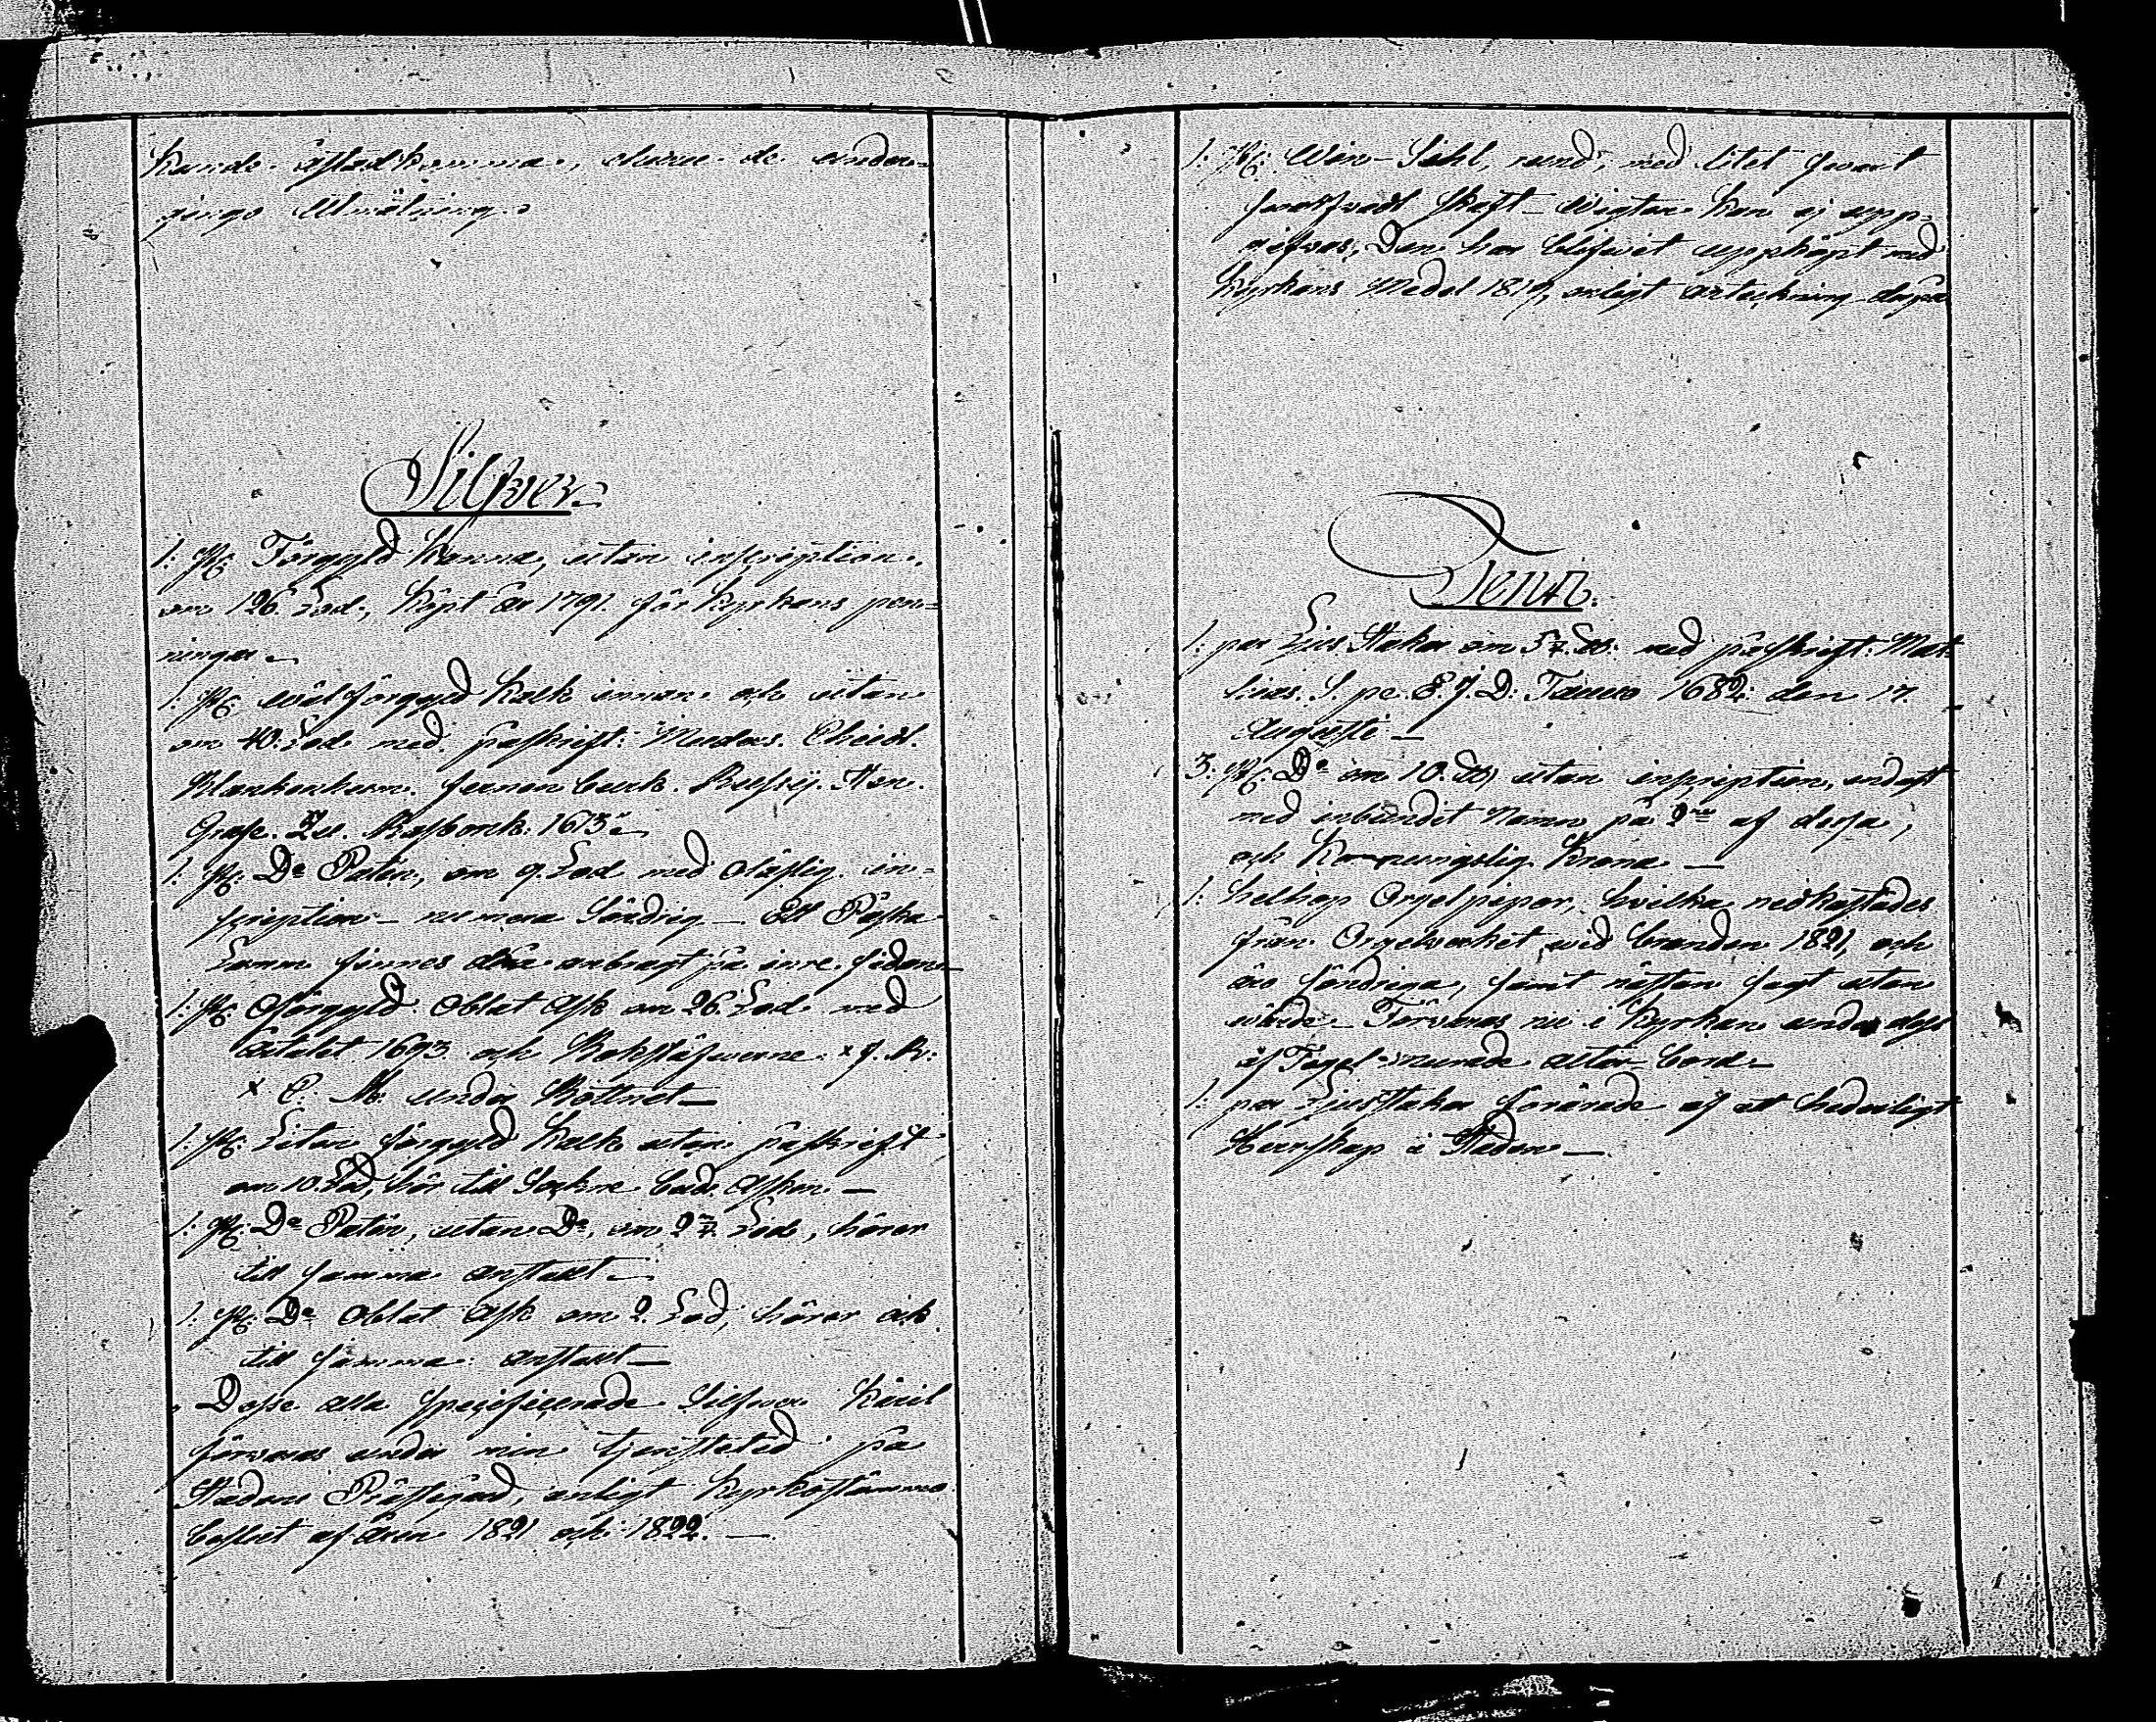 kunde åstadkomma, denne de under-
gingo Utmätning.
Silfver.
1: st: Förgyld Kanna, utan inscription.
om 126. Lod, köpt år 1791. för Kyrkans pen-
ningar.
1: st: wäl förgyld Kalk innan och utan
om 40. Lod med påskrift:
Grafe. 1673.
1: st: Do Patén, om 9. Lod med oläslig in-
scription numera söndrig Ett Påska
Lamm finnes anbragt på inre sidan
1: st: Oförgyld Oblat Ask om 26. Lod med
årtalet 1693 och Bokstäfwerne. x J. M:
x C: M: under Bottnet
1: st: Liten förgyld Kalk utan påskrift
om 10. Lod, hör till Sockne Asken.
1: st: Do Patén, utan Do, om 2 Lod, hörer
till samma anstalt
1: st: Do Oblat Ask om 2. Lod, hörer ock
till samma anstalt
Desse alla specificerade Silfwer Käril
förwaras under min tjenstetid på
Stadens Prästgård, enligt Kyrkostämmo
beslut af åren 1821 och 1822.
1: st: Win-Sihl, rund, med litet swart
skaft wigten kan ej upp-
gifwas, Den har blifwit uppköpt med
Kyrkans Medel enligt anteckning derpå
Tenn.
1: par Ljus Stakar om med påskrift: Mat-
tias. S. pe. E. J. D: 1682 den 17.
Augusti
3: st: Do om 10. utan inscription, endast
med inbundet Namn på 2ne af dessa,
och Konungslig Krona
1: helhop Orgelpipor, hwilka nedkastades
från Orgelwerket wid branden 1821, och
äro söndriga, samt nästan sagt utan
wärde Förwaras nu i Kyrkan under dess
af Tegel murade altar bord
1: par Ljusstakar förärade af ett hederligt
Herrskap i Staden